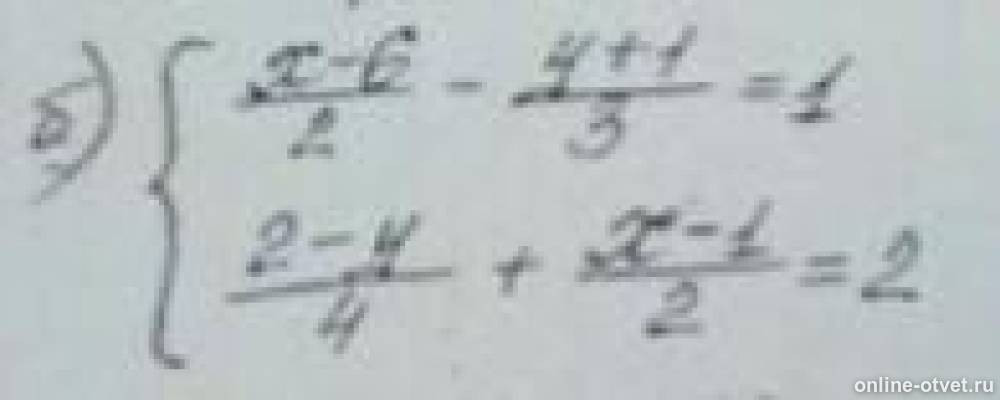 б) { (x-6)/2 - (y+1)/3 = 1
(2-y)/4 + (x-1)/2 = 2
online-otvet.ru